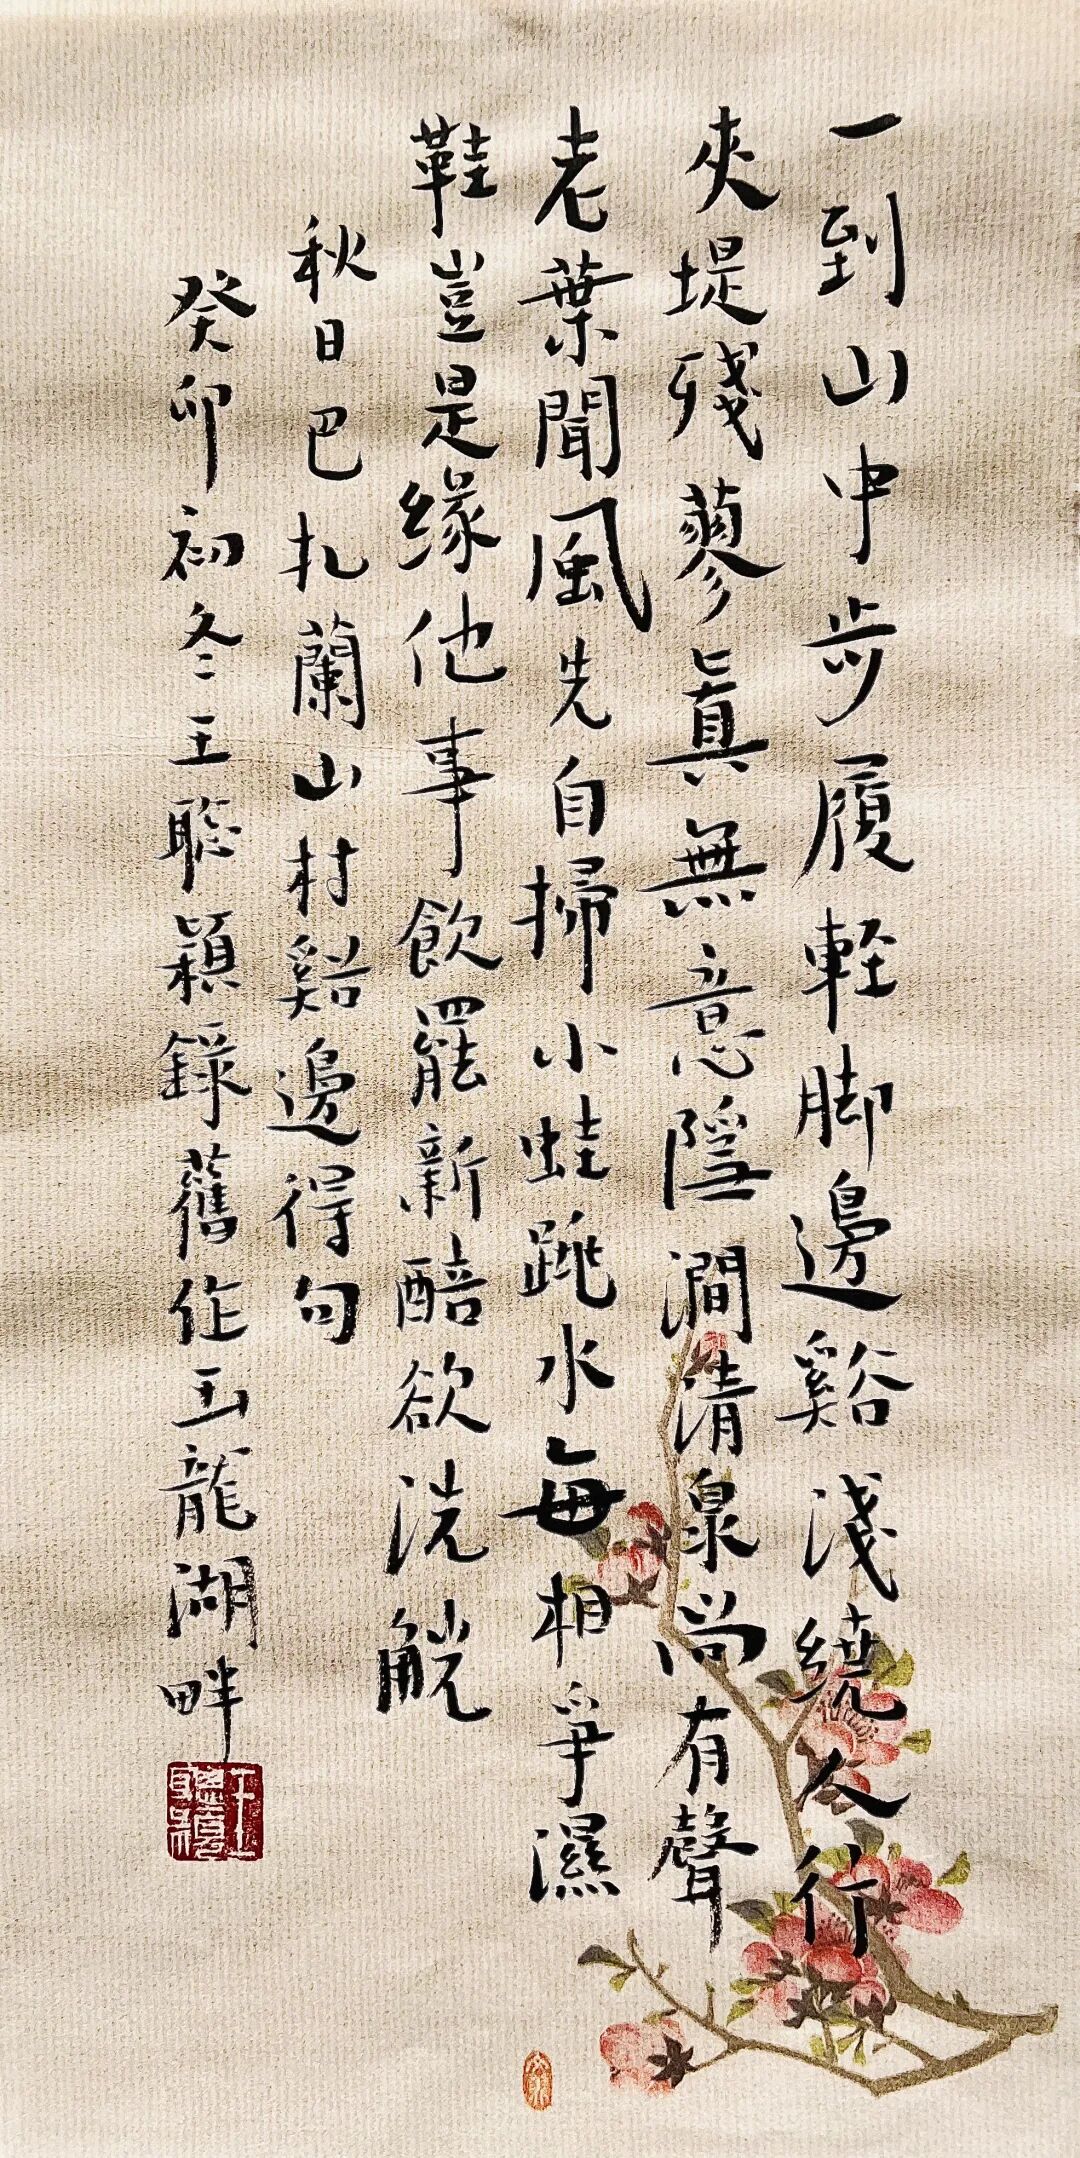 一到山中步履輕脚邊谿淺繞人行
夾堤殘蓼真無意隱澗清泉尚有聲
老葉聞風先自掃小蛙跳水每相爭濕
鞋豈是緣他事飲罷新醅欲洗觥
秋日巴扎蘭山村谿邊得句
癸卯初冬王聰穎錄舊作玉龍湖畔
王聰穎